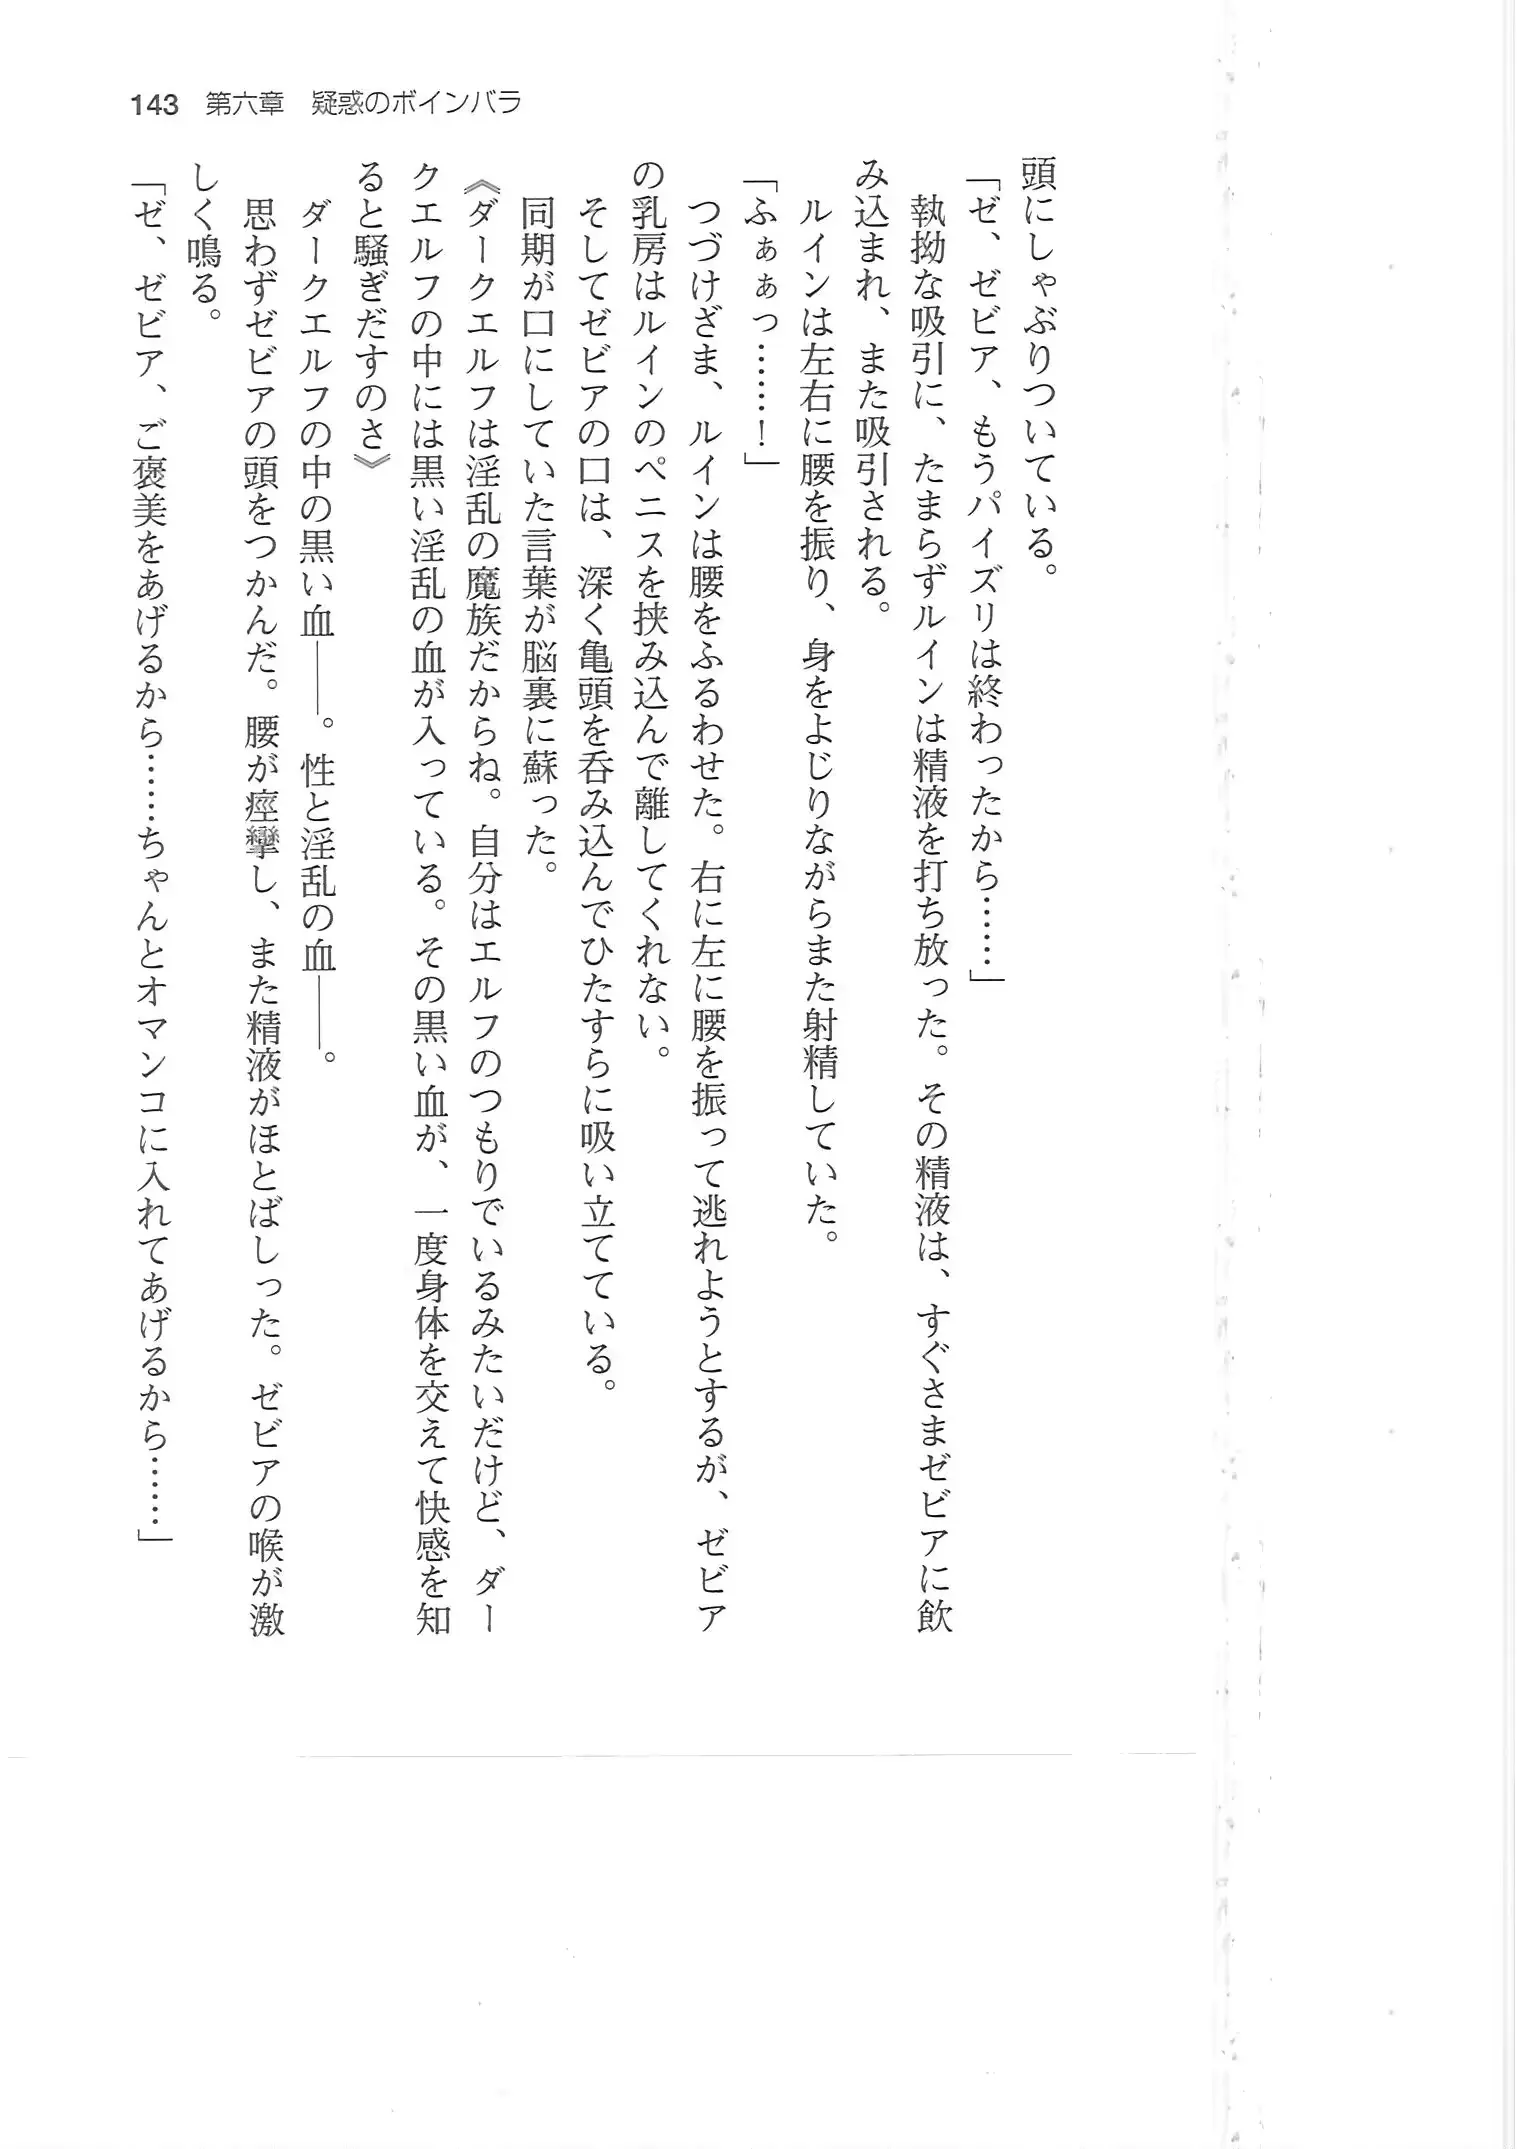 143　第六章　疑惑のボインバラ
頭にしゃぶりついている。
「ゼ、ゼビア、もうパイズリは終わったから……」
　執拗な吸引に、たまらずルインは精液を打ち放った。その精液は、すぐさまゼビアに飲
み込まれ、また吸引される。
　ルインは左右に腰を振り、身をよじりながらまた射精していた。
「ふぁぁっ……！」
　つづけざま、ルインは腰をふるわせた。右に左に腰を振って逃れようとするが、ゼビア
の乳房はルインのペニスを挟み込んで離してくれない。
　そしてゼビアの口は、深く亀頭を呑み込んでひたすらに吸い立てている。
　同期が口にしていた言葉が脳裏に蘇った。
《ダークエルフは淫乱の魔族だからね。自分はエルフのつもりでいるみたいだけど、ダー
クエルフの中には黒い淫乱の血が入っている。その黒い血が、一度身体を交えて快感を知
ると騒ぎだすのさ》
　ダークエルフの中の黒い血――。性と淫乱の血――。
　思わずゼビアの頭をつかんだ。腰が痙攣し、また精液がほとばしった。ゼビアの喉が激
しく鳴る。
「ゼ、ゼビア、ご褒美をあげるから……ちゃんとオマンコに入れてあげるから……」